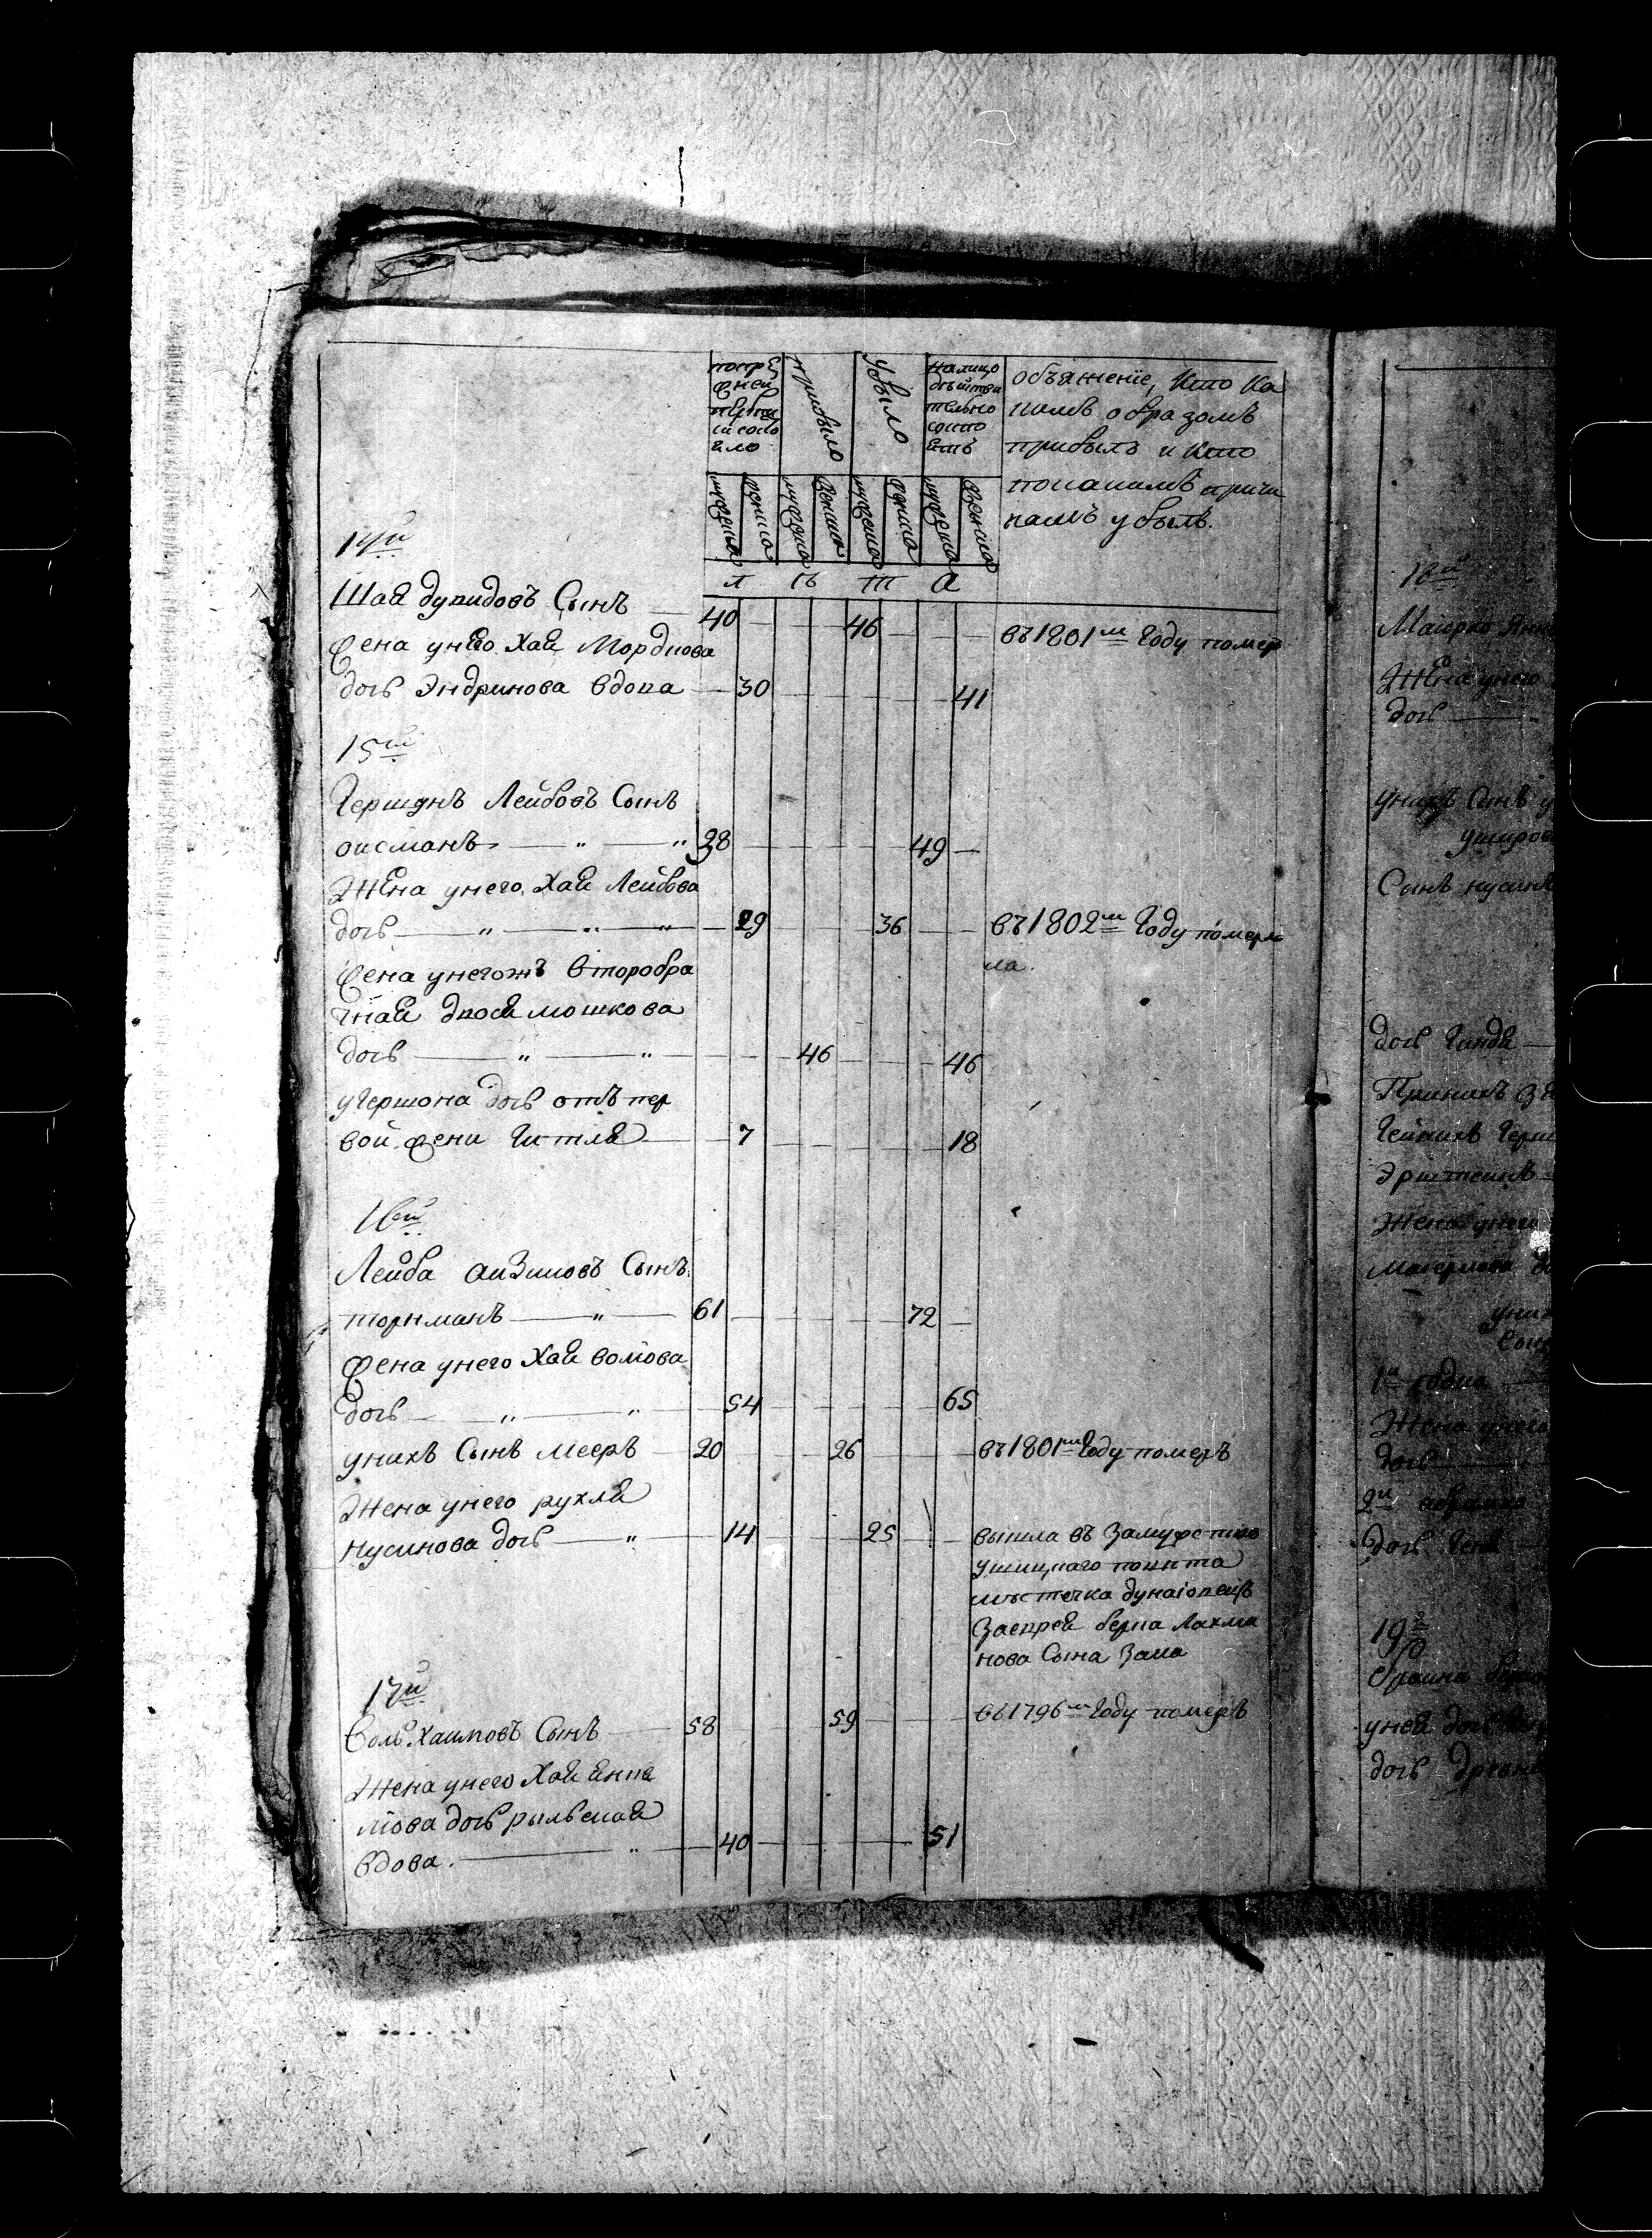 попре
жней
переп
иси сосо
яло
прибыло
убыло
налицо
действи
тельно
состо
етъ
объяжение, кто ка
кимъ образомъ
прибылъ и кто
покакимъ причи
намъ убылъ.
мужеска женска мужеска женска мужеска женска мужеска женска
Л Ѣ Т А
14й
Шая Сынъ 40 46 въ1801м году помер
жена унего Хая Мордкова
дочь вдова 30 41
15й
Гершонъ Лейбовъ Сынъ
оксманъ 38 49
Жена унего Хая Лейбова
дочь 29 36 въ1802м году померл
ла.
жена унегожъ второбра
чная двося мошкова
дочь 46 46
угершона дочь отъ пер
вой жени Гитля 7 18
16й
Лейба айзиковъ Сынъ
торкманъ 61 72
жена унего Хая волкова
дочь 54 65
унихъ Сынъ мееръ 20 26 въ1801мъ году померъ
Жена унего рухля
Нусинова дочь 14 25 вышла въ Замужство
ушицкаго повѣта
мѣстечка дунаіовецъ
Заеврея берка Лахма
нова Сына Зака
17й
Воль Хаимовъ Сынъ 58 59 въ1796м году померъ
Жена унего Хая янке
лiова дочь рыльская
вдова. 40 51
18й
Маиорко Янк
Жена унего
дочь
унихъ Синъ у
Сынъ нусинъ
дочь Гинда
Гейнихъ Герш
Эрштеинъ
Жена унего
уних
Сынъ
Жена унего
дочь
2й
дочь
19й
уней дочь
дочь